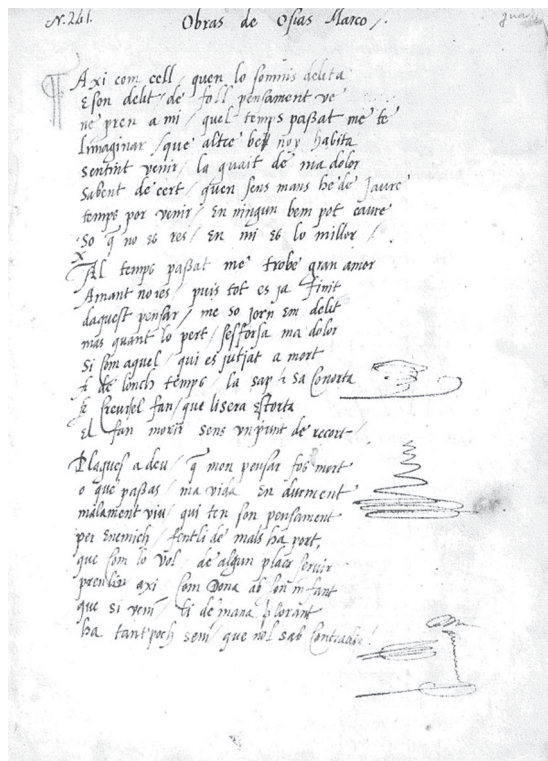 N.241.
Obras de Osias Marco /.
Axi com cell / quen lo somnis delita
E son delit / de foll pensament ve
ne pren a mi / quel temps paßat me te
Limaginar / que altre bep noy habita
sentint venir / la guait de ma dolor
sabent de cert / quen sens mans he de Jaure
temps por venir / En ningun bem pot caure
so q̄ no es res / En mi es lo millor /.
x
Al temps paßat me trobe gran amor
Amant no res / puis tot es ja finit
daquest pensar / me so jorn Em delit
mas quant lo pert / sesforsa ma dolor
si som aquel / qui es jutjat a mort
de lonch temps / la sap i sa Conorta
Creurel fan / que li sera Estorta
El fan morir sens vn punt de recort /
Plagues a deu / q̄ mon pensar fos mort
o que paßas / ma vida En durment
malament viu / qui ten son pensament
per Enemich / fentli de mals ha port,
que som lo vol / de algun plaer servir
prenline axi / Com Dona ab son infant
que si veni / li demana plorant
ha tant poch seni / que nol sab Contradir /